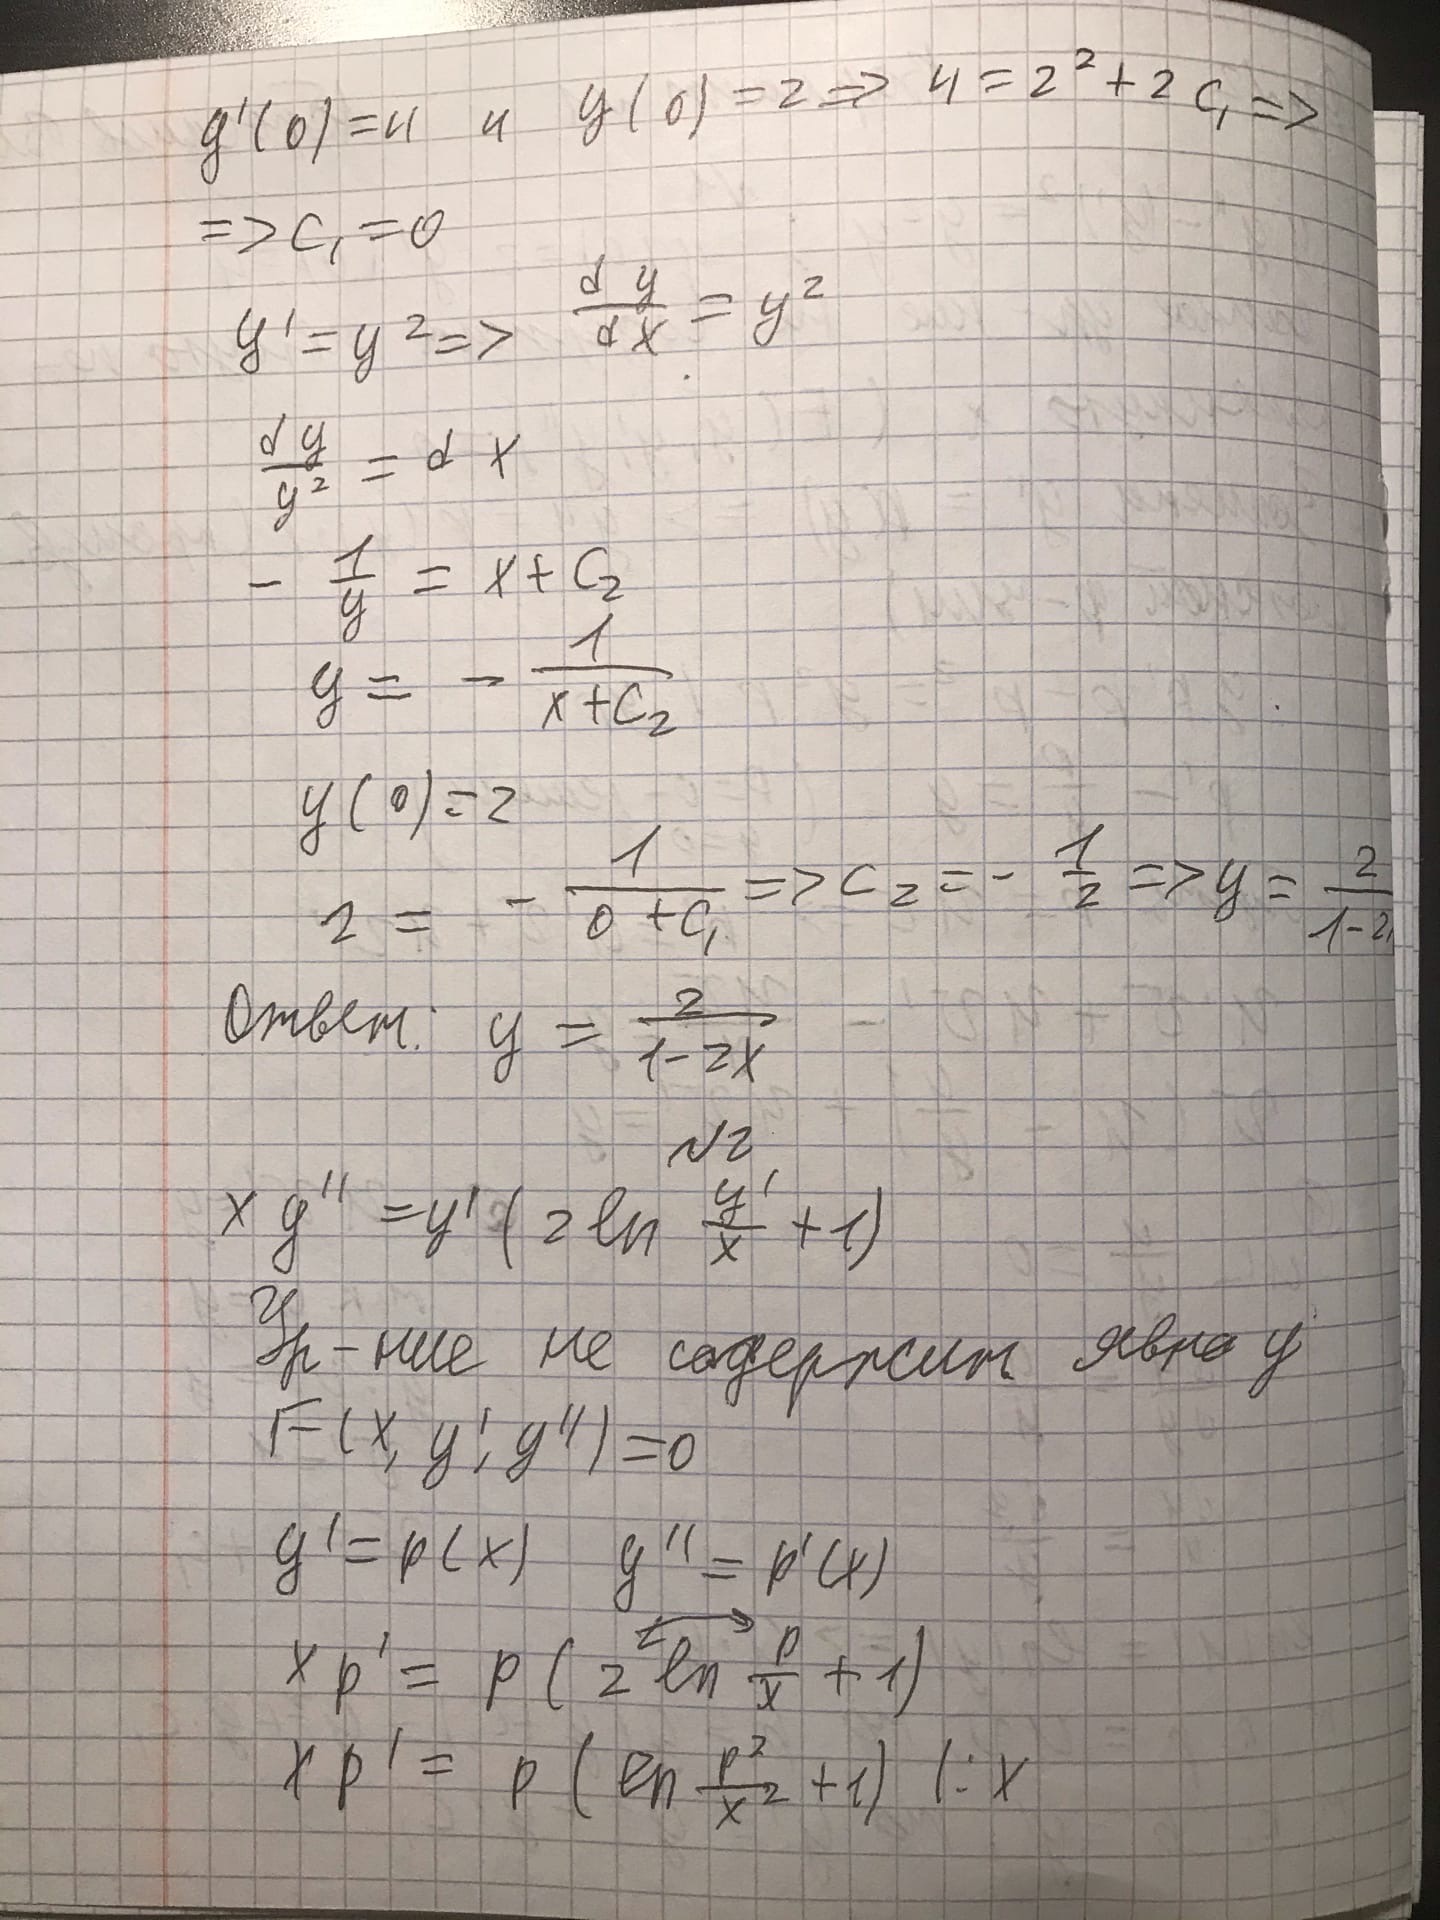 y'(0)=4 и y(0)=2=> 4=2²+2C₁=>
=>C₁=0
y'=y²=> dy/dx=y²
dy/y²=dx
-1/y=x+C₂
y=-1/(x+C₂)
y(0)=2
2=-1/(0+C₁)=>C₂=-1/2=>y=2/(1-2
Ответ: y=2/(1-2x)
№2
xy''=y'(2ln y'/x+1)
Ур-ние не содержит явно y
F(x,y',y'')=0
y'=p(x) y''=p'(x)
xp'=p(2ln p/x+1)
xp'=p(ln p²/x²+1) |:x